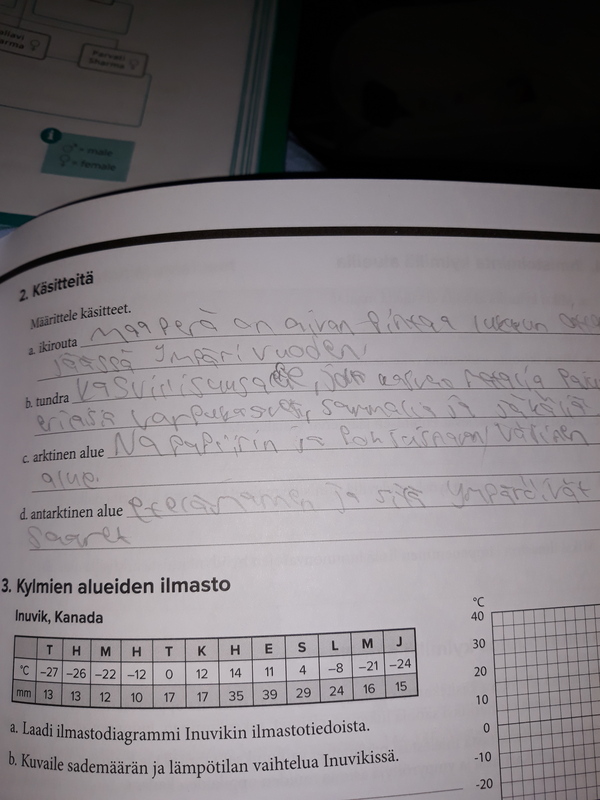 Parvati
Sharma
= male
= female
2. Käsitteitä
Määrittele käsitteet.
a. ikirouta maaperä on aivan pintaa lukuun
jäässä ympäri vuoden
b. tundra
sammalia ja jäkäliä
c. arktinen alue Napapiirin ja Pohjoisnavan välinen
alue.
d. antarktinen alue Etelämanner ja sitä ympäröivät
saaret
3. Kylmien alueiden ilmasto
Inuvik, Kanada
T H M H T K H E S L M J
°C -27 -26 -22 -12 0 12 14 11 4 -8 -21 -24
mm 13 13 12 10 17 17 35 39 29 24 16 15
a. Laadi ilmastodiagrammi Inuvikin ilmastotiedoista.
b. Kuvaile sademäärän ja lämpötilan vaihtelua Inuvikissä.
°C
40
30
20
10
0
-10
-20